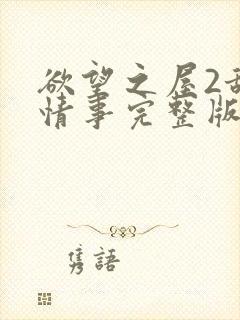 欲望之屋2
情事完整版
隽語